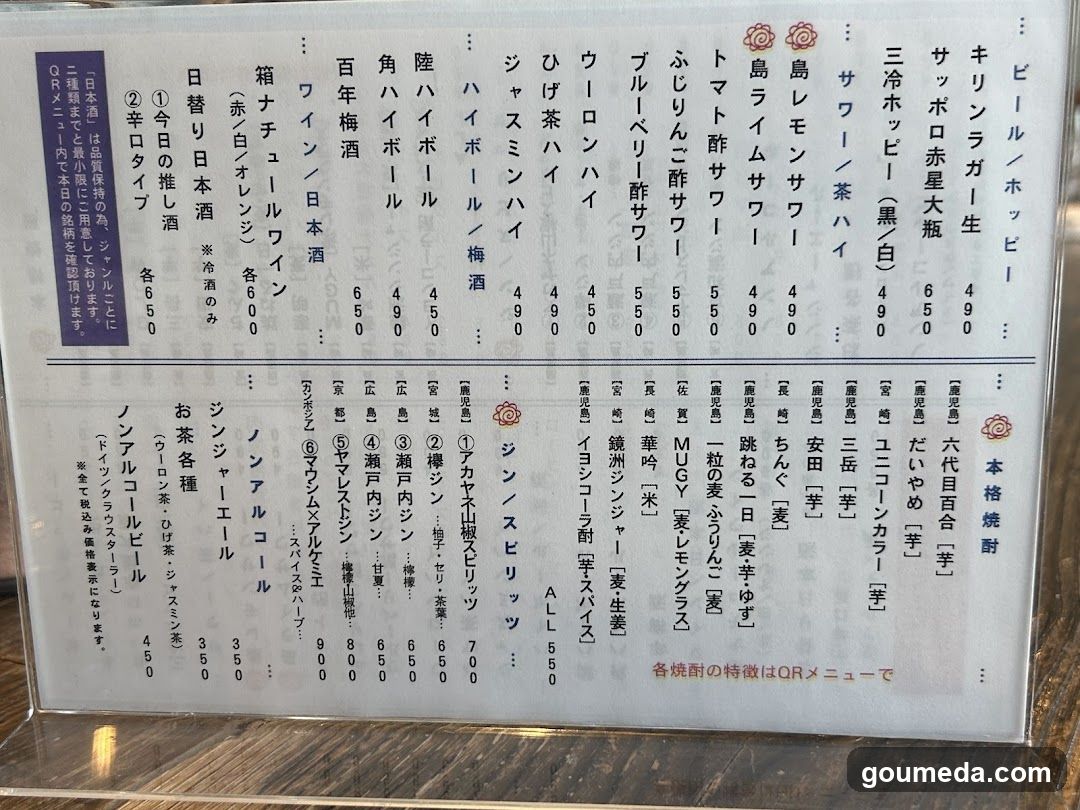 … ビール／ホッピー …
キリンラガー生 490
サッポロ赤星大瓶 650
三冷ホッピー（黒／白） 490
… サワー／茶ハイ …
島レモンサワー 490
島ライムサワー 490
トマト酢サワー 550
ふじりんご酢サワー 550
ブルーベリー酢サワー 550
ウーロンハイ 450
ひげ茶ハイ 490
ジャスミンハイ 490
… ハイボール／梅酒 …
陸ハイボール 450
角ハイボール 490
百年梅酒 650
… ワイン／日本酒 …
箱ナチュールワイン
（赤／白／オレンジ） 各600
日替り日本酒 ※冷酒のみ
①今日の推し酒
②辛口タイプ 各650
「日本酒」は品質保持の為、ジャンルごとに
二種類までと最小限にご用意しております。
QRメニュー内で本日の銘柄を確認頂けます。
… 本格焼酎 …
【鹿児島】六代目百合［芋］
【鹿児島】だいやめ［芋］
【宮崎】ユニコーンカラー［芋］
【鹿児島】三岳［芋］
【鹿児島】安田［芋］
【長崎】ちんぐ［麦］
【鹿児島】跳ねる一日［麦・芋・ゆず］
【鹿児島】一粒の麦・ふうりんご［麦］
【佐賀】MUGY［麦・レモングラス］
【長崎】華吟［米］
【宮崎】鏡洲ジンジャー［麦・生姜］
【鹿児島】イヨシコーラ酎［芋・スパイス］
ALL 550
各焼酎の特徴はQRメニューで
… ジン／スピリッツ …
【鹿児島】①アカヤネ山椒スピリッツ 700
【宮城】②欅ジン …柚子・セリ・茶葉… 650
【広島】③瀬戸内ジン …檸檬… 650
【広島】④瀬戸内ジン …甘夏… 650
【京都】⑤ヤマレストジン …檸檬・山椒他… 800
【カンボジア】⑥マウシム×アルケミエ
…スパイス&ハーブ… 900
… ノンアルコール …
ジンジャーエール 350
お茶各種
（ウーロン茶・ひげ茶・ジャスミン茶） 350
ノンアルコールビール
（ドイツ／クラウスターラー） 450
※全て税込み価格表示になります。
goumeda.com